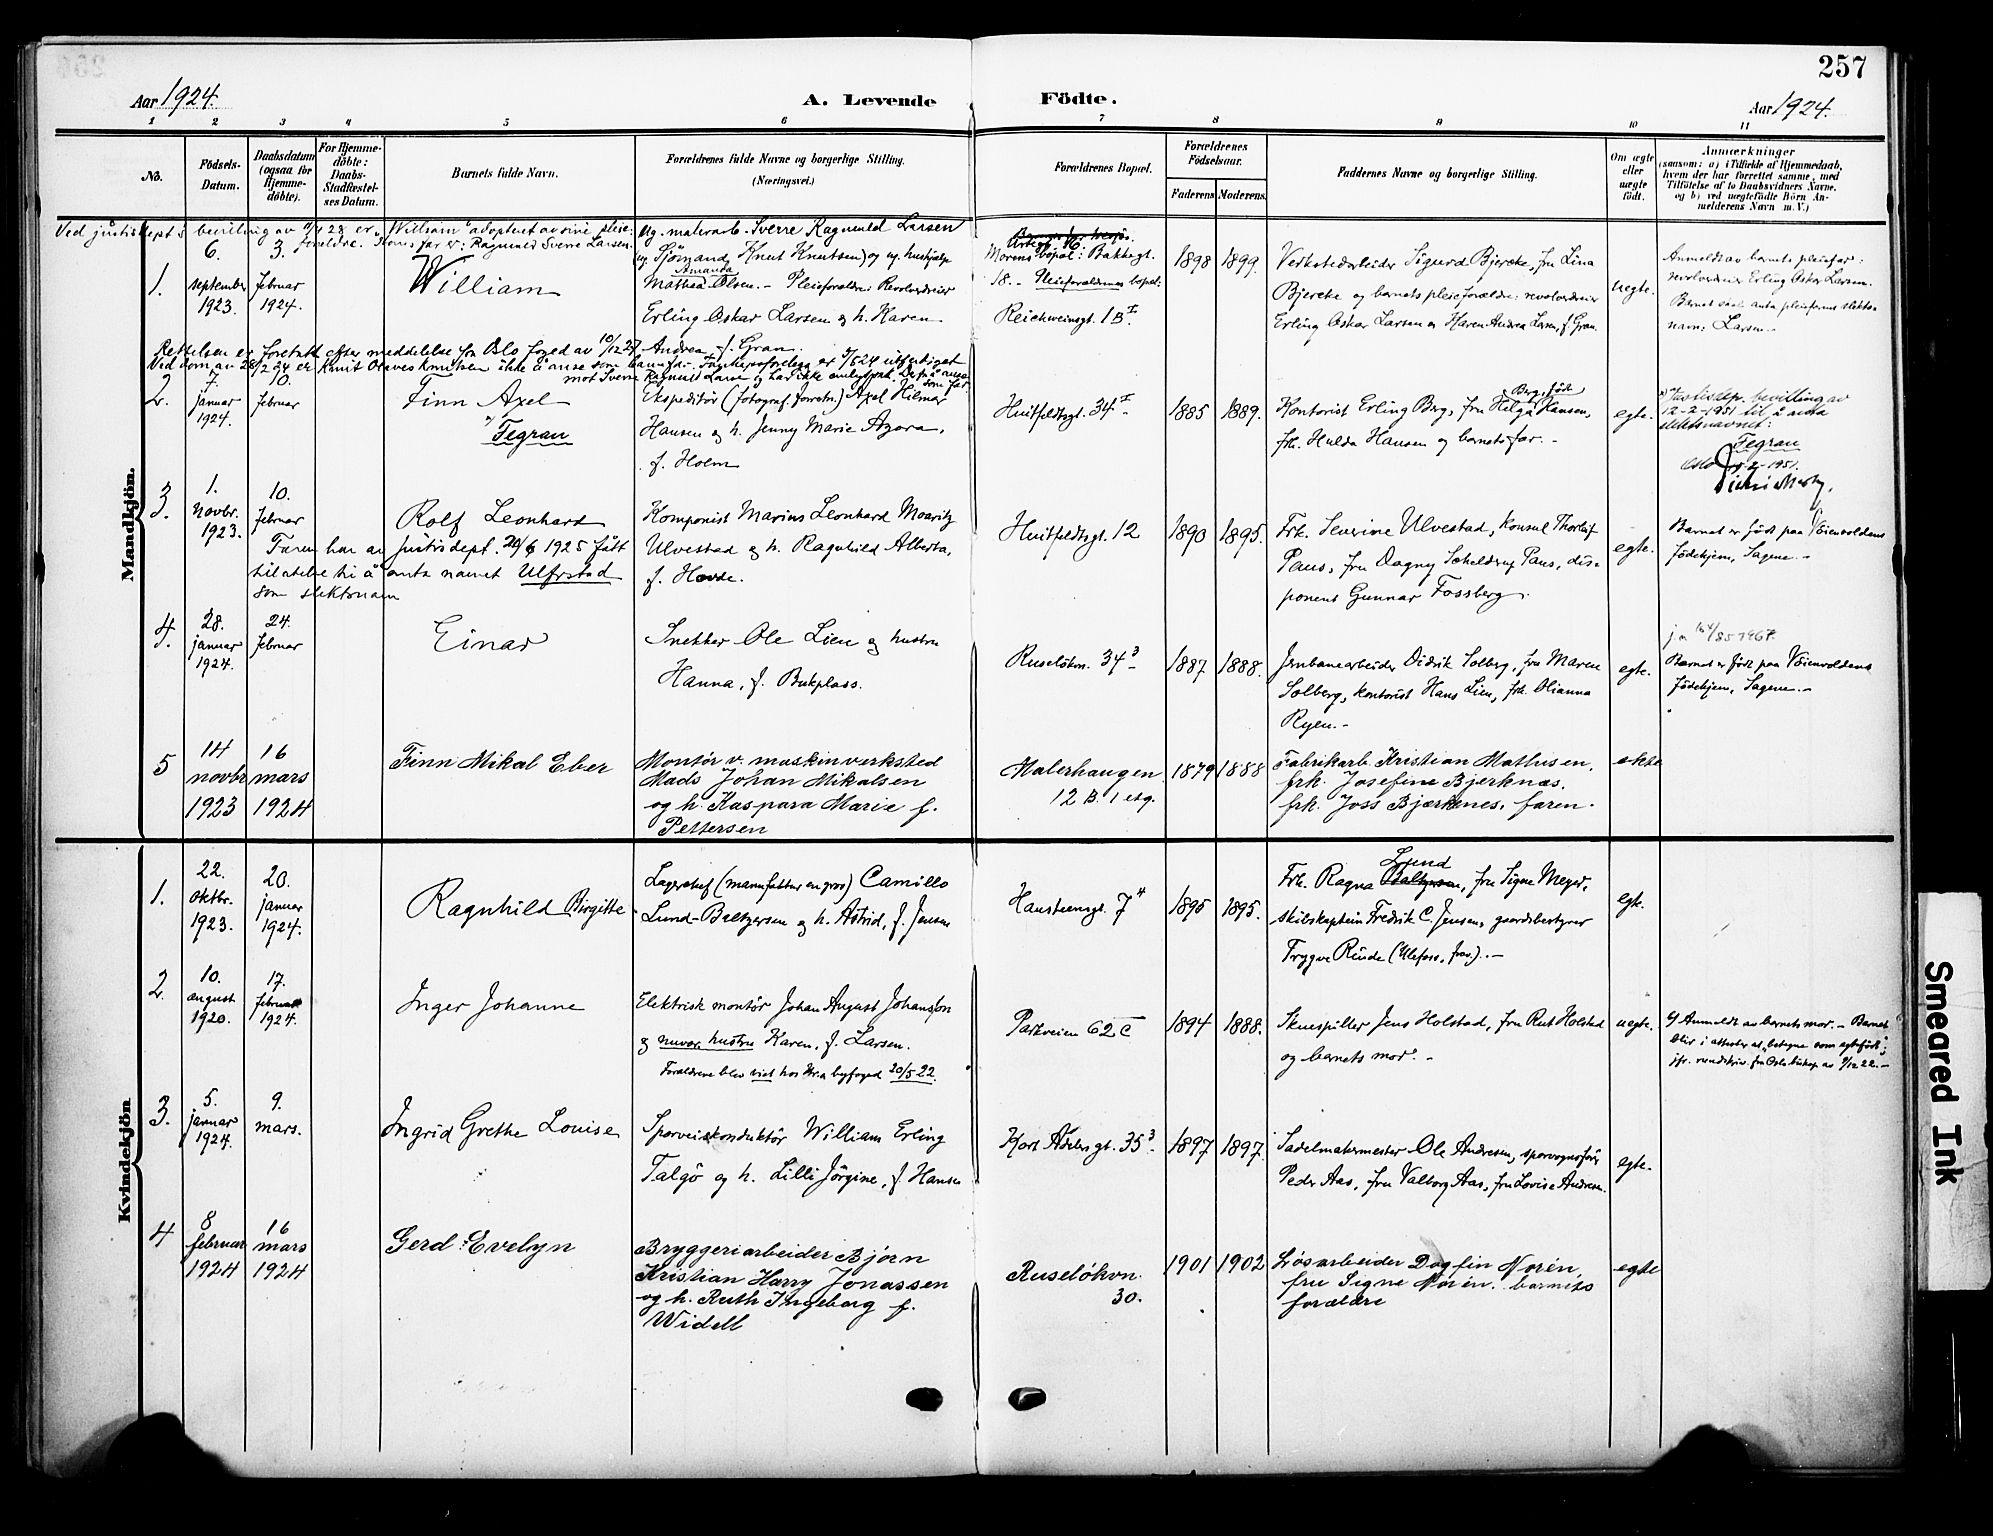 257
Aar 1924.
A. Levende
Födte.
Aar 1924.
1 2 3 4 5 6 7 8 9 10 11
No.
Födsels-
Datum.
Daabsdatum
(ogsaa for
Hjemme-
döbte).
For Hjemme-
döbte:
Daabs-
Stadfæstel-
ses Datum.
Barnets fulde Navn.
Forældrenes fulde Navne og borgerlige Stilling.
(Næringsvei.)
Forældrenes Bopæl.
Forældrenes
Födselsaar.
Faderens Moderens
Faddernes Navne og borgerlige Stilling.
Om ægte
eller
uægte
födt.
Anmærkninger
(saasom: a) i Tilfælde af Hjemmedaab,
hvem der har forrettet samme, med
Tilföielse af to Daabsvidners Navne.
og b) ved uægtefödte Börn An-
melderens Navn m. V.)
Mandkjön.
Ved justisdept.s bevilling av 11/4 28 er "William" adoptert av sine pleie-
foreldre. Hans far er: Ragnvald Sverre Larsen.
1.
6.
september
1923.
3.
februar
1924.
William
Ug. malerarb. Sverre Ragnvald Larsen
(ug. Sjömand Knut Knutsen) og ug. hushjelp
Amanda
Mathea Olsen. - Pleieforældre: Revolverdreier
Erling Oskar Larsen og h. Karen
Andrea, f. Gran.
Morens bopæl: Bakkegt.
18. - Pleieforældrenes bopæl:
Reichweinsgt. 1 B I.
1898 1899.
Verkstedarbeider Sigurd Bjercke, fru Lina
Bjercke og barnets pleieforældre: revolverdreier
Erling Oskar Larsen og Karen Andrea Larsen, f. Gran.
uegte.
Anmeldt av barnets pleiefar:
revolverdreier Erling Oskar Larsen.
Barnet skal anta pleiefarens slekts-
navn: Larsen.
Rettelsen er foretatt efter meddelelse fra Oslo foged av 10/12 27
2.
7.
januar
1924.
10.
februar
Finn Axel
x) Tegran
Ekspeditör (fotograf. forretn.) Axel Hilmar
Hansen og h. Jenny Marie Agora,
f. Holm
Huitfeldtsgt. 34 I
1885 1889.
Berg, født
Kontorist Erling Berg, fru Helga Hansen,
frk. Hulda Hansen og barnets far. -
egte.
x) Justisdep. bevilling av
12-2-1951 til å anta
slektsnavnet:
Tegran
3.
1.
novbr.
1923.
10.
februar
Rolf Leonhard
Komponist Marius Leonhard Moaritz
Ulvestad og h. Ragnhild Alberta,
f. Hovde.
Faren har av justisdept. 20/6 1925 fått
tilatelse til å anta navnet Ulfrstad
som slektsnavn
Huitfeldtsgt. 12
1890 1895.
Frk. Severine Ulvestad, konsul Thorleif
Paus, fru Dagny Schelderup Paus, dis-
ponent Gunnar Fossberg.
egte.
Barnet er født paa Vöienvoldens
födehjem, Sagene. -
4.
28.
januar
1924.
24.
februar
Einar
Snekker Ole Lien og hustru
Hanna, f. Bukplass.
Ruselökvn. 34 3
1887 1888.
Jernbanearbeider Didrik Solberg, fru Maren
Solberg, kontorist Hans Lien, frk. Olianna
Ryen. -
egte.
Barnet er født paa Vöienvoldens
födehjem, Sagene. -
5
14
novbr
1923
16
mars
1924
Finn Mikal Eber
Montør v. maskinverksted
Mads Johan Mikalsen
og h. Kaspara Marie f.
Pettersen
Malerhaugen
12 B. 1 etg.
1879 1888
Fabrikarb. Kristian Mathisen,
frk. Josefine Bjerknæs.
frk. Joss Bjærknes, faren.
ekte
Kvindekjön
1.
22.
oktbr.
1923.
20.
januar
1924.
Ragnhild Birgitte
Lagerchef (manufaktur en gros) Camillo
Lund-Baltzersen og h. Astrid, f. Jensen
Hausteensgt. 7 4
1895 1895.
Lund
Frk. Ragna Baltzersen, fru Signe Meyer,
skibskaptein Fredrik C. Jensen, gaardsbestyrer
Trygve Rinde (Ulefoss, frav.). -
egte.
2.
10.
august
1920.
17.
februar
1924.
Inger Johanne
Elektrisk montör Johan August Johansson
og nuvær. hustru Karen, f. Larsen.
Forældrene blev viet hos Kr.a byfoged 20/5 22.
Parkveien 62 C
1894 1888.
Skuespiller Jens Holstad, fru Rut Holstad
og barnets mor. -
uegte.
Anmeldt av barnets mor. - Barnet
blir i attester at betegne som egtefödt;
jfr. rundskriv. fra Oslo biskop av 9/12 22. -
3.
5.
januar
1924.
9.
mars.
Ingrid Grethe Louise
Sporveiskonduktör William Erling
Talgö og h. Lilli Jörgine, f. Hansen
Kort Adelersgt. 35 3
1897 1897.
Sadelmakermester Ole Andresen, sporvognsförer
Peder Aas, fru Valborg Aas, fru Lovise Andresen.
egte.
4
8
februar
1924
16
mars
1924
Gerd Evelyn
Bryggeriarbeider Bjørn
Kristian Harry Jonassen
og h. Ruth Ingeborg f.
Widell
Ruseløkvn.
30.
1901 1902
Løsarbeider Dagfin Norén,
fru Signe Norén. barnets
forældre
egte
Smeared Ink